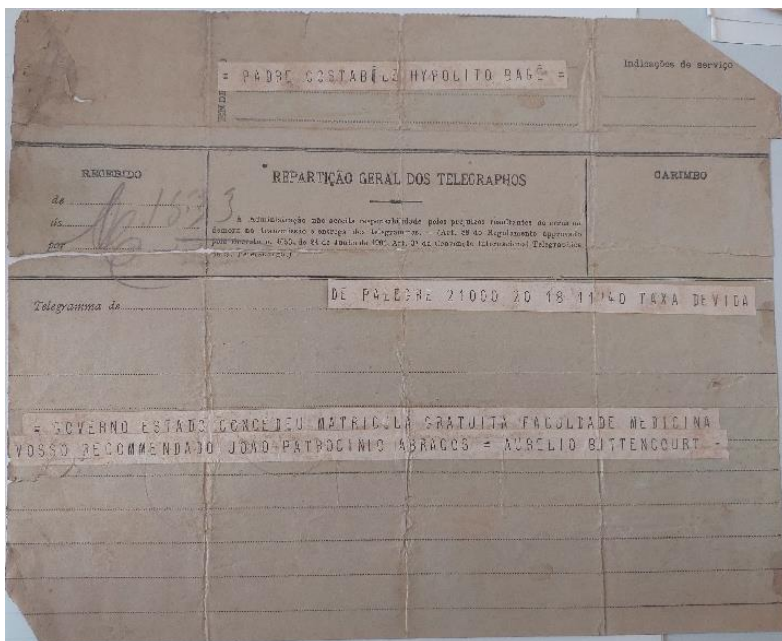 = PADRE COSTABILE HYPOLITO BAGÉ =
Indicações de serviço
RECEBIDO
REPARTIÇÃO GERAL DOS TELEGRAPHOS
CARIMBO
de
ás
por
A Administração não acceita responsabilidade pelos prejuizos resultantes do erro ou
demora na transmissão e entrega dos telegrammas. - (Art. do Regulamento approvado
pelo decreto n. de 24 de Junho de 1901. Art. 3º da Convenção Internacional Telegraphica
Telegramma de
DE PALEGRE 21000 20 18 11/40 TAXA DEVIDA
= GOVERNO ESTADO CONCEDEU MATRICULA GRATUITA FACULDADE MEDICINA
VOSSO RECOMMENDADO JOAO PATROCINIO ABRAÇOS = AURELIO BITTENCOURT -